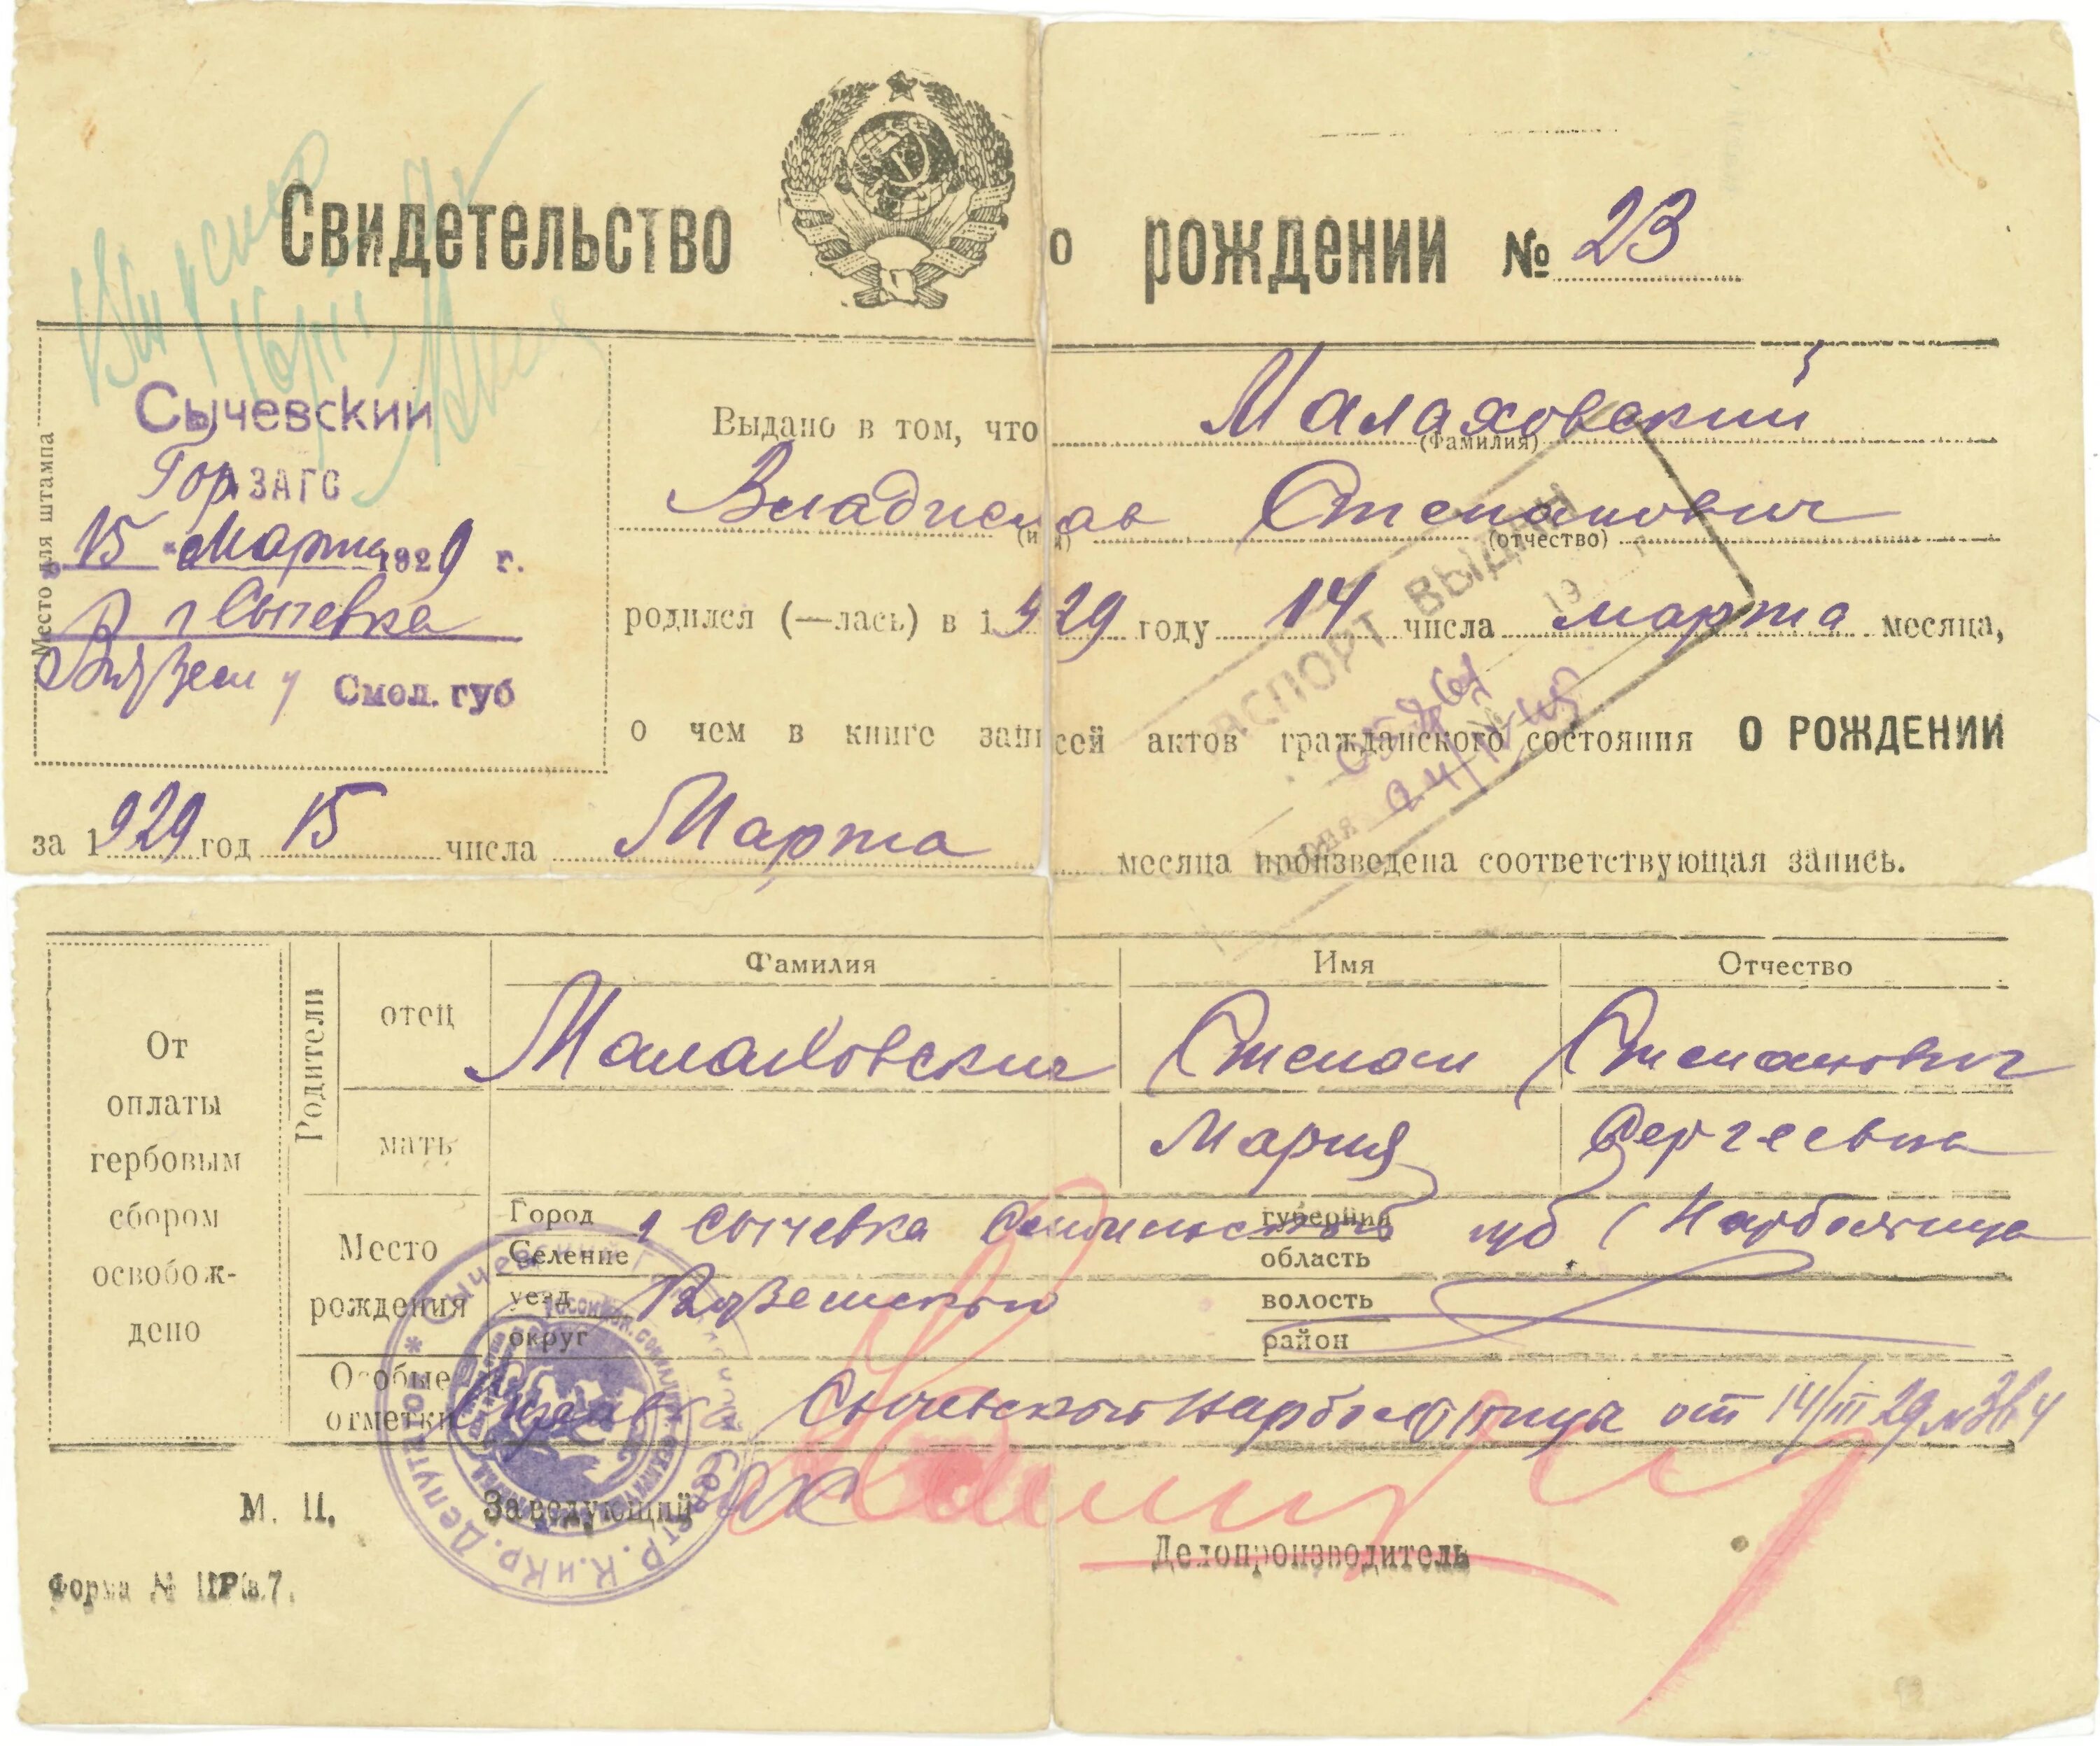 Свидетельство о рождении № 23
Место для штампа
Сычевский
Гор ЗАГС
"15" Марта 1929 г.
г Сычевка
Вяземск у Смол. губ
Выдано в том, что Малаховский
(фамилия)
Владислав Степанович
(имя) (отчество)
родился (—лась) в 1929 году 14 числа марта месяца,
о чем в книге записей актов гражданского состояния О РОЖДЕНИИ
за 1929 год 15 числа Марта месяца произведена соответствующая запись.
ПАСПОРТ ВЫДАН
19
От
оплаты
гербовым
сбором
освобож-
дено
Родители
Фамилия Имя Отчество
отец Малаховский Степан Степанович
мать Мария Сергеевна
Место рождения
Город г Сычевка Смоленской губерния губ (Нарбольница
Селение область
уезд Вяземский волость
округ район
Особые отметки Справк Сычевской Нарбольницы от 14/III 29
М. П. Заведующий
Делопроизводитель
Форма №